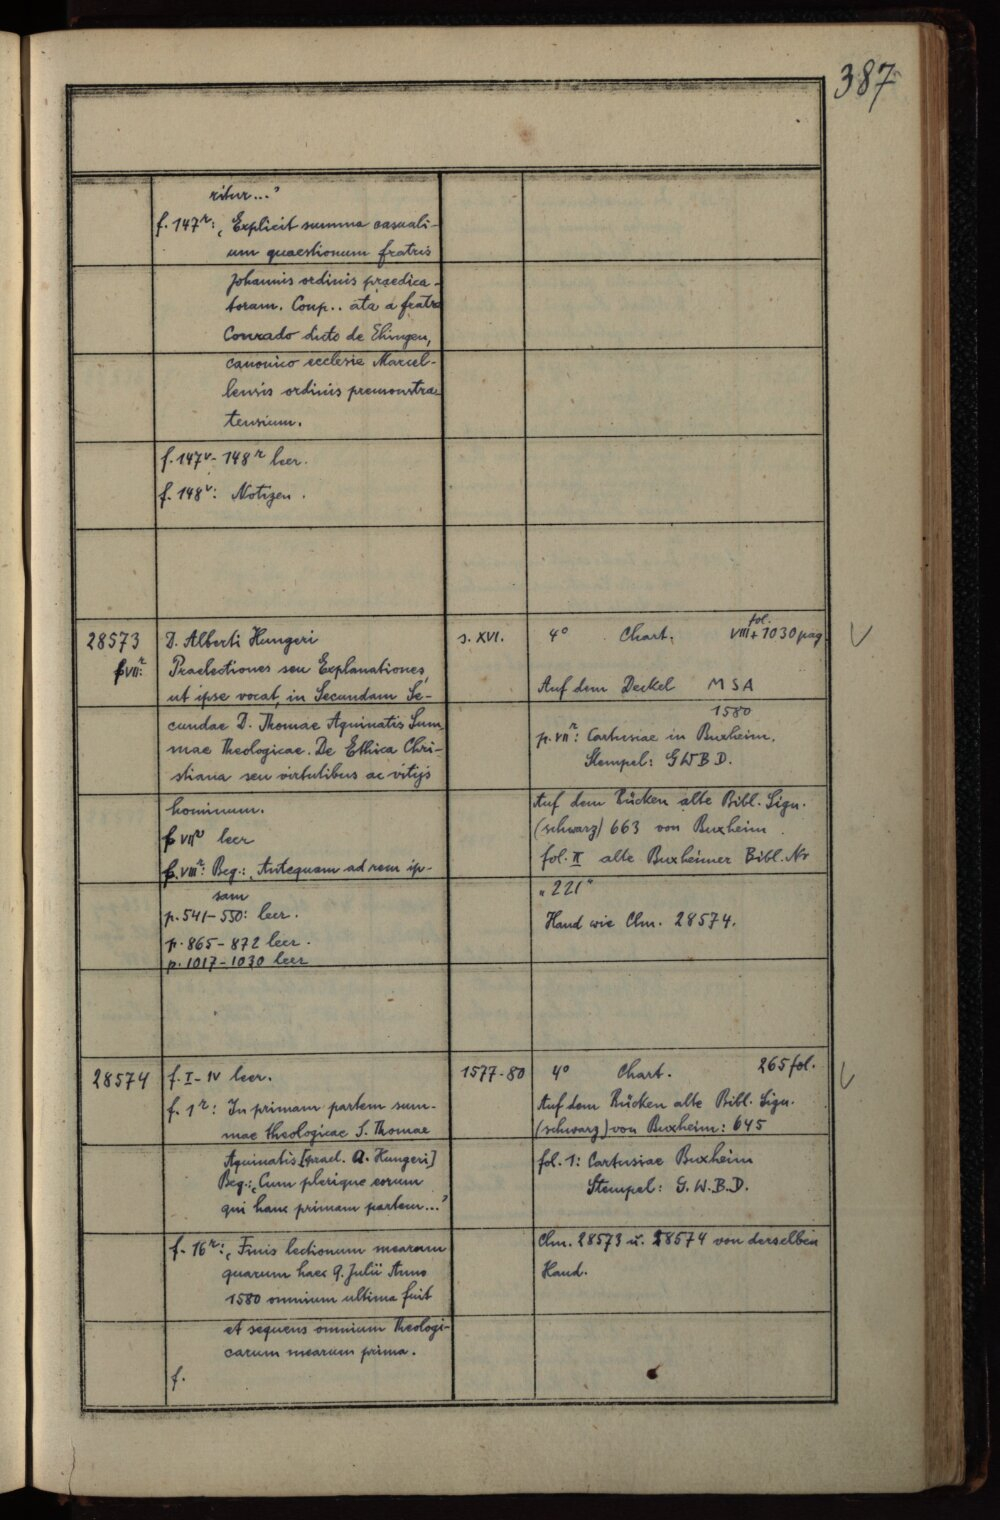 387
ritur...'
f. 147r: ‚Explicit summa casuali-
um quaestionum fratris
Johannis ordinis praedica-
toram. Conp..ata a fratre
Conrado dicto de Ehingen,
canonico ecclesie Marcel-
lensis ordinis premonstra-
tensium.
f. 147v-148r leer.
f. 148v: Notizen.
28573
f. VIIr:
D. Alberti Hungeri
Praelectiones seu Explanationes,
ut ipse vocat, in Secundam Se-
cundae D. Thomae Aquinatis Sum-
mae Theologicae. De Ethica Chri-
stiana seu virtutibus ac vitijs
hominum.
f. VIIv leer
f. VIIIr: Beg.: ‚Antequam ad rem ip-
sam
p. 541-550: leer.
p. 865-872 leer.
p. 1017-1030 leer
s. XVI.
4° Chart. VIII fol. + 1030 pag.
Auf dem Deckel MSA
1580
p. VIIr: Cartusiae in Buxheim.
Stempel: GWBD.
Auf dem Rücken alte Bibl. Sign.
(schwarz) 663 von Buxheim.
fol. II alte Buxheimer Bibl. Nr
„221“
Hand wie Clm. 28574.
28574
f. I-IV leer.
f. 1r: In primam partem sum-
mae theologicae S. Thomae
Aquinatis [prael. A. Hungeri]
Beg.: ‚Cum plerique eorum
qui hanc primam partem...'
f. 16r: ‚Finis lectionum mearum
quarum haec 9. Julii Anno
1580 omnium ultima fuit
et sequens omnium theologi-
carum mearum prima.
f.
1577-80
4° Chart. 265 fol.
Auf dem Rücken alte Bibl. Sign.
(schwarz) von Buxheim: 645
fol. 1: Cartusiae Buxheim
Stempel: G.W.B.D.
Clm. 28573 u. 28574 von derselben
Hand.